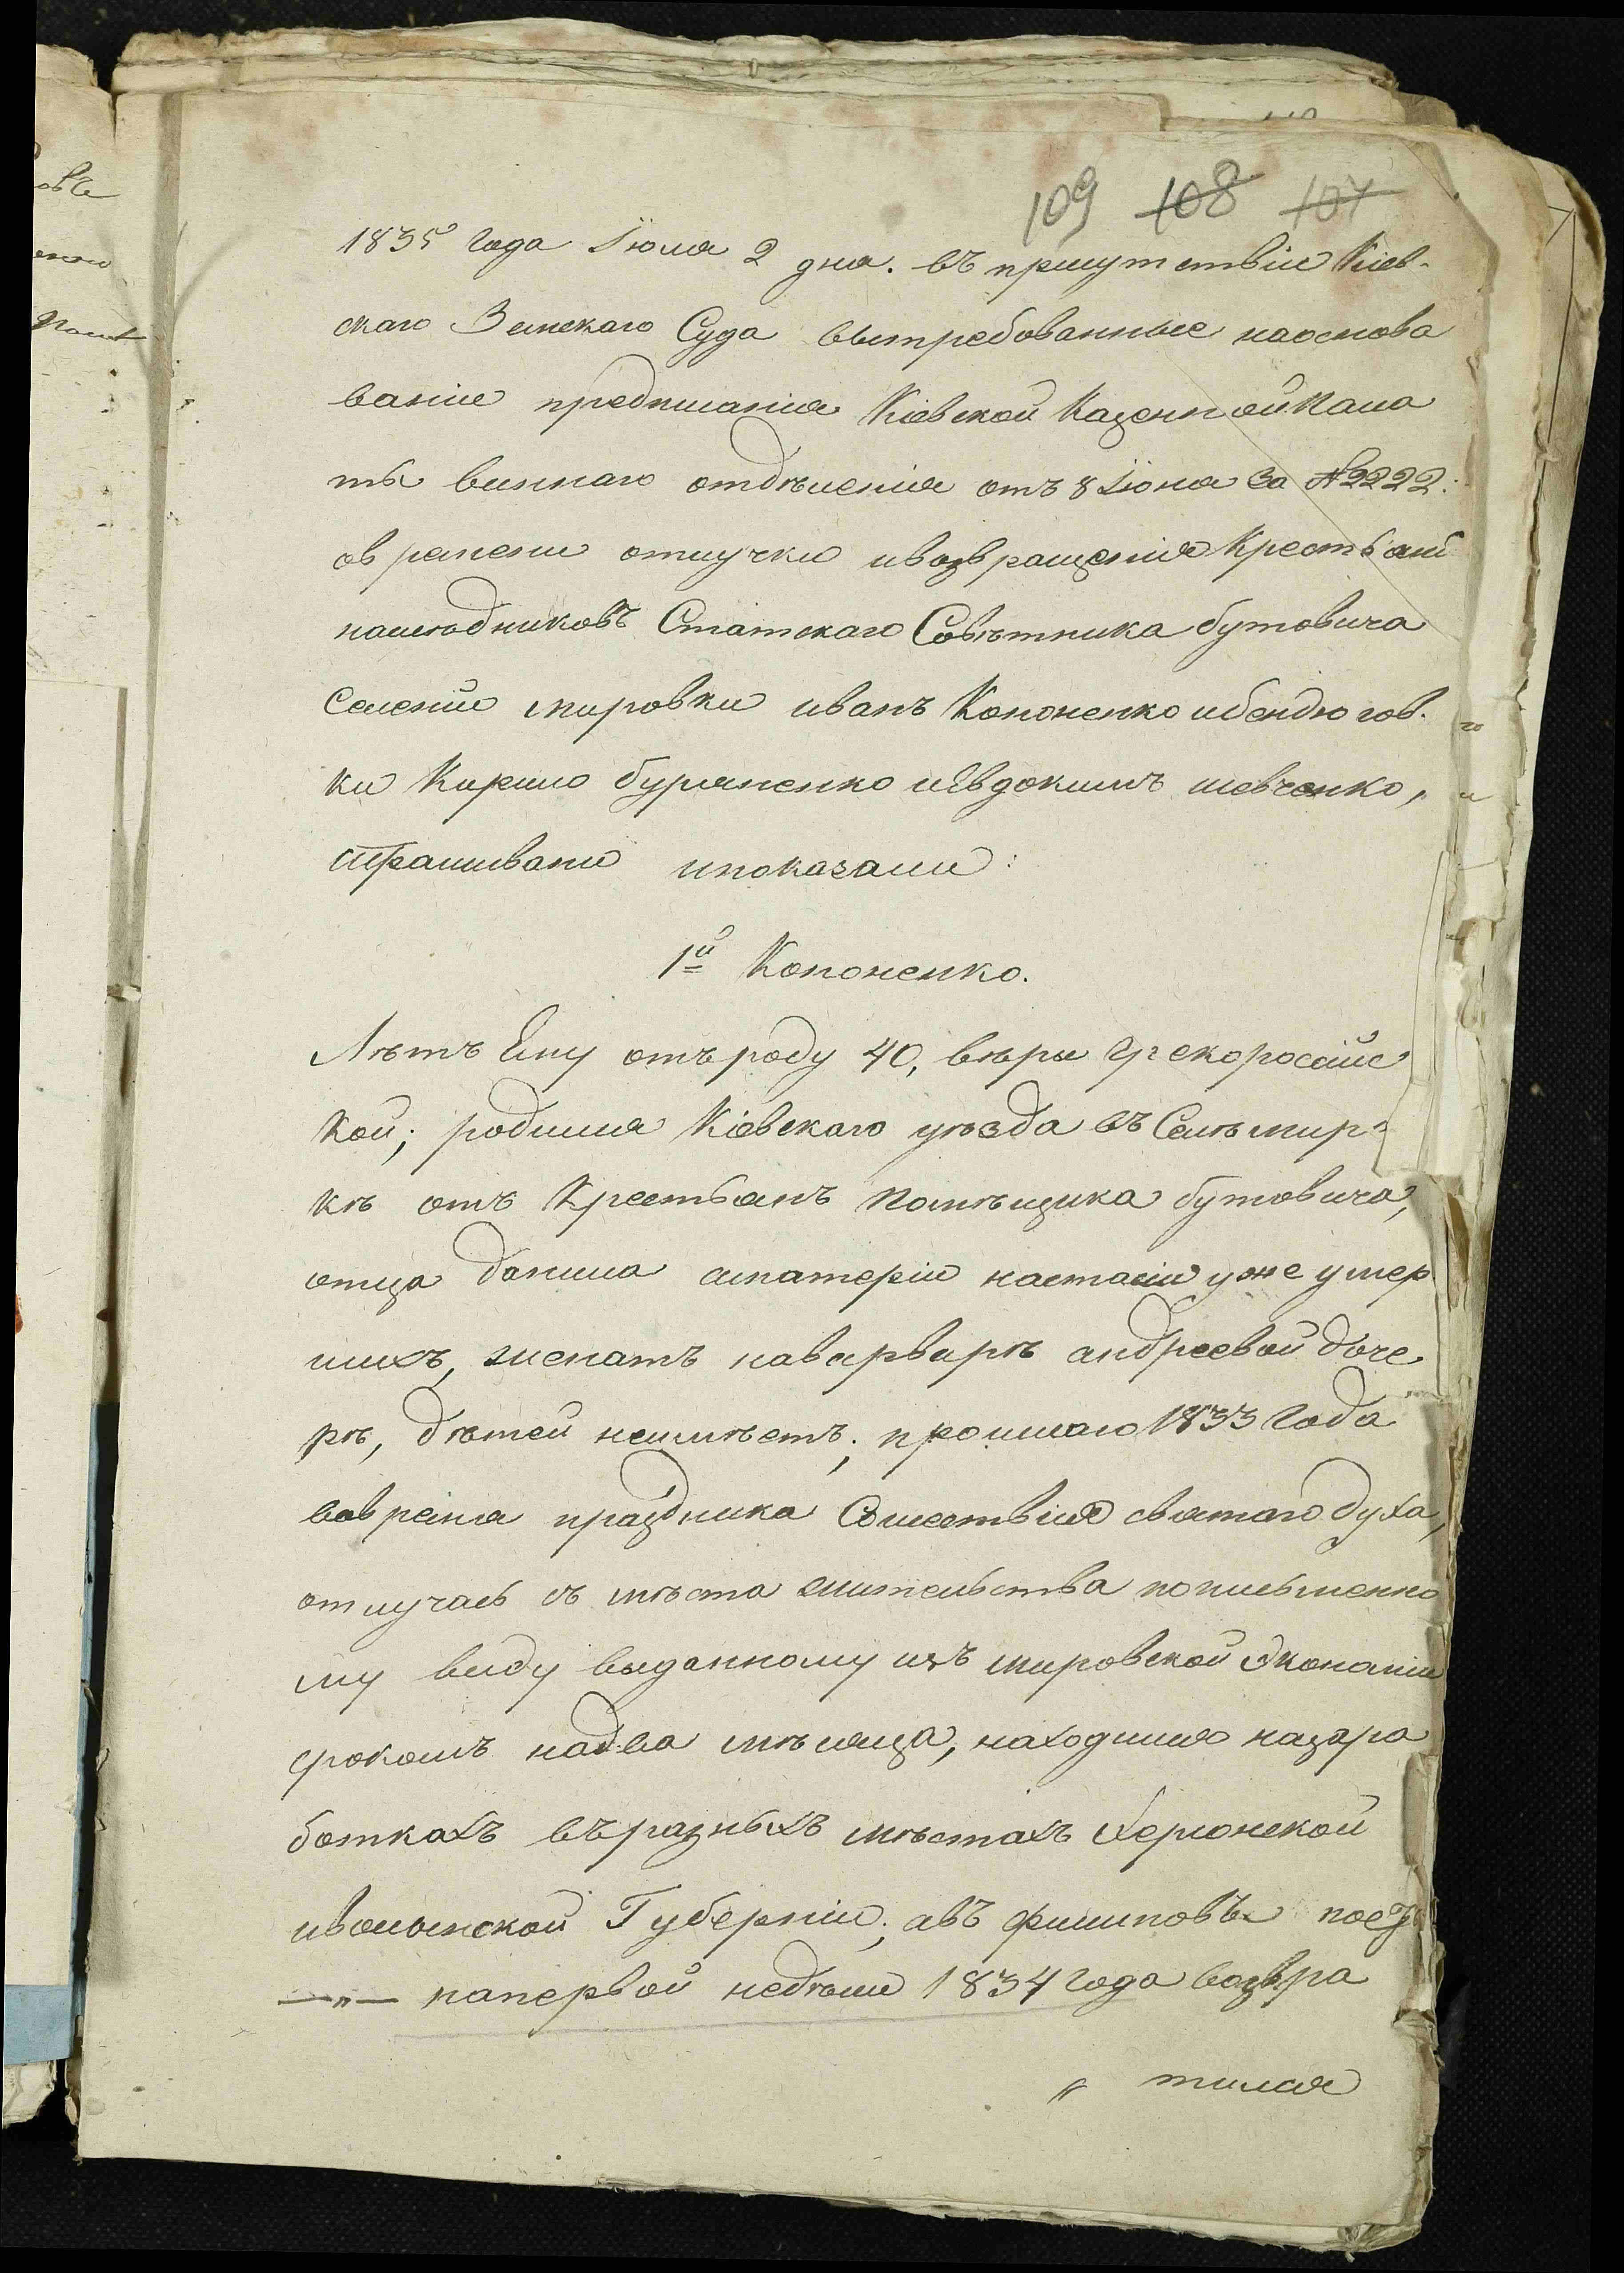 109 108 107
1835 года Іюля 2 дня. въ присутствіе Кіев-
скаго Земскаго Суда вытребованные наоснова
ваніе предписанія Кіевской Казенной Пала
ты виннаго отдѣленія отъ 8 Іюня за № 2222.
овремени отлучки ивозвращенія Крестьянъ
наслѣдниковъ Статскаго Совѣтника бутовича
Селеніи мировки иванъ Кононенко ибендюгов-
ки Кирило буряченко иЕвдокимъ шевченко,
спрашивани ипоказали:
1й Кононенко.
Лѣтъ Ему отъроду 40, вѣры Грекоросійс
кой; родился Кіевскаго уѣзда въ Селѣ мир-
кѣ отъ Крестьянъ помѣщика бутовича,
отца данила иматеріи настасіи уже умер
шихъ, женатъ наварварѣ андреевой доче
рѣ, дѣтей неимѣетъ; прошлаго 1833 года
вовремя праздника Сошествія святаго духа,
отлучась съ мѣста жительства пописьменно
му виду выданному изъ мировской Экономіи
срокомъ надва мѣсяца, находился назара
боткахъ въразныхъ мѣстахъ Херсонской
иволынской Губерніи; авъ филиповъ постъ
—„— напервой недѣли 1834 года возвра
„ тился